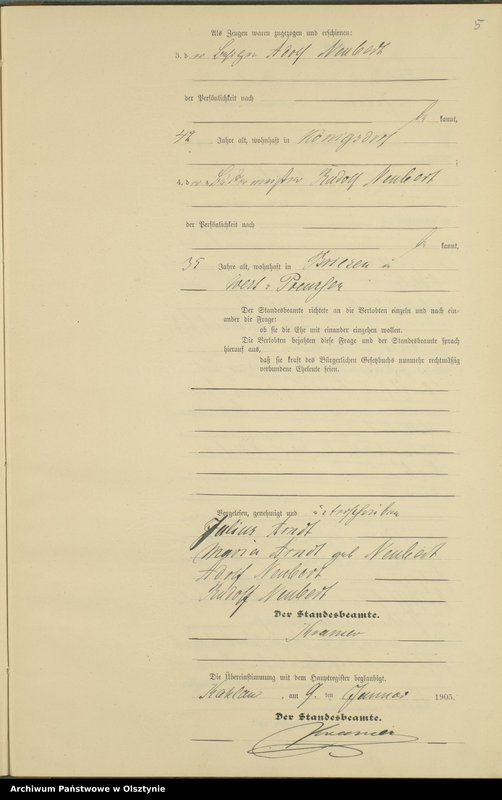 5
Als Zeugen waren zugezogen und erschienen:
3. der Besitzer Adolf Neubert
der Persönlichkeit nach
be kannt,
42 Jahre alt, wohnhaft in Königsdorf
4. der Bäckermeister Rudolf Neubert
der Persönlichkeit nach
be kannt,
35 Jahre alt, wohnhaft in Briesen in
West-Preußen
Der Standesbeamte richtete an die Verlobten einzeln und nach ein-
ander die Frage:
ob sie die Ehe mit einander eingehen wollen.
Die Verlobten bejahten diese Frage und der Standesbeamte sprach
hierauf aus,
daß sie kraft des Bürgerlichen Gesetzbuchs nunmehr rechtmäßig
verbundene Eheleute seien.
Vorgelesen, genehmigt und unterschrieben
Julius Arndt
Maria Arndt geb Neubert
Adolf Neubert
Rudolf Neubert
Der Standesbeamte.
Kramer
Die Übereinstimmung mit dem Hauptregister beglaubigt.
Kahlau, am 9. ten Januar 1905.
Der Standesbeamte.
Kramer
Archiwum Państwowe w Olsztynie